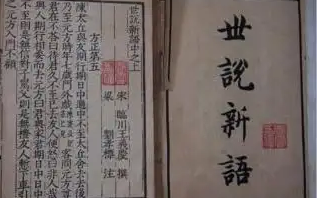 世說新語
世說新語中之上
方正第五
宋 臨川王義慶 撰
梁 劉孝標 注
陳太丘與友期行期日中過中不至太丘舍去去後
乃至元方時年七歲門外戲 客問元方尊
君在不荅曰待君久不至已去友人便怒曰非人哉
與人期行相委而去元方曰君與家君期日中日中
不至則是無信對子罵父則是無禮友人慙下車引
之元方入門不顧